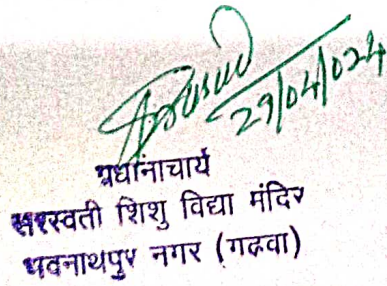 29/04/024
प्रधानाचार्य
सरस्वती शिशु विद्या मंदिर
भवनाथपुर नगर (गढवा)